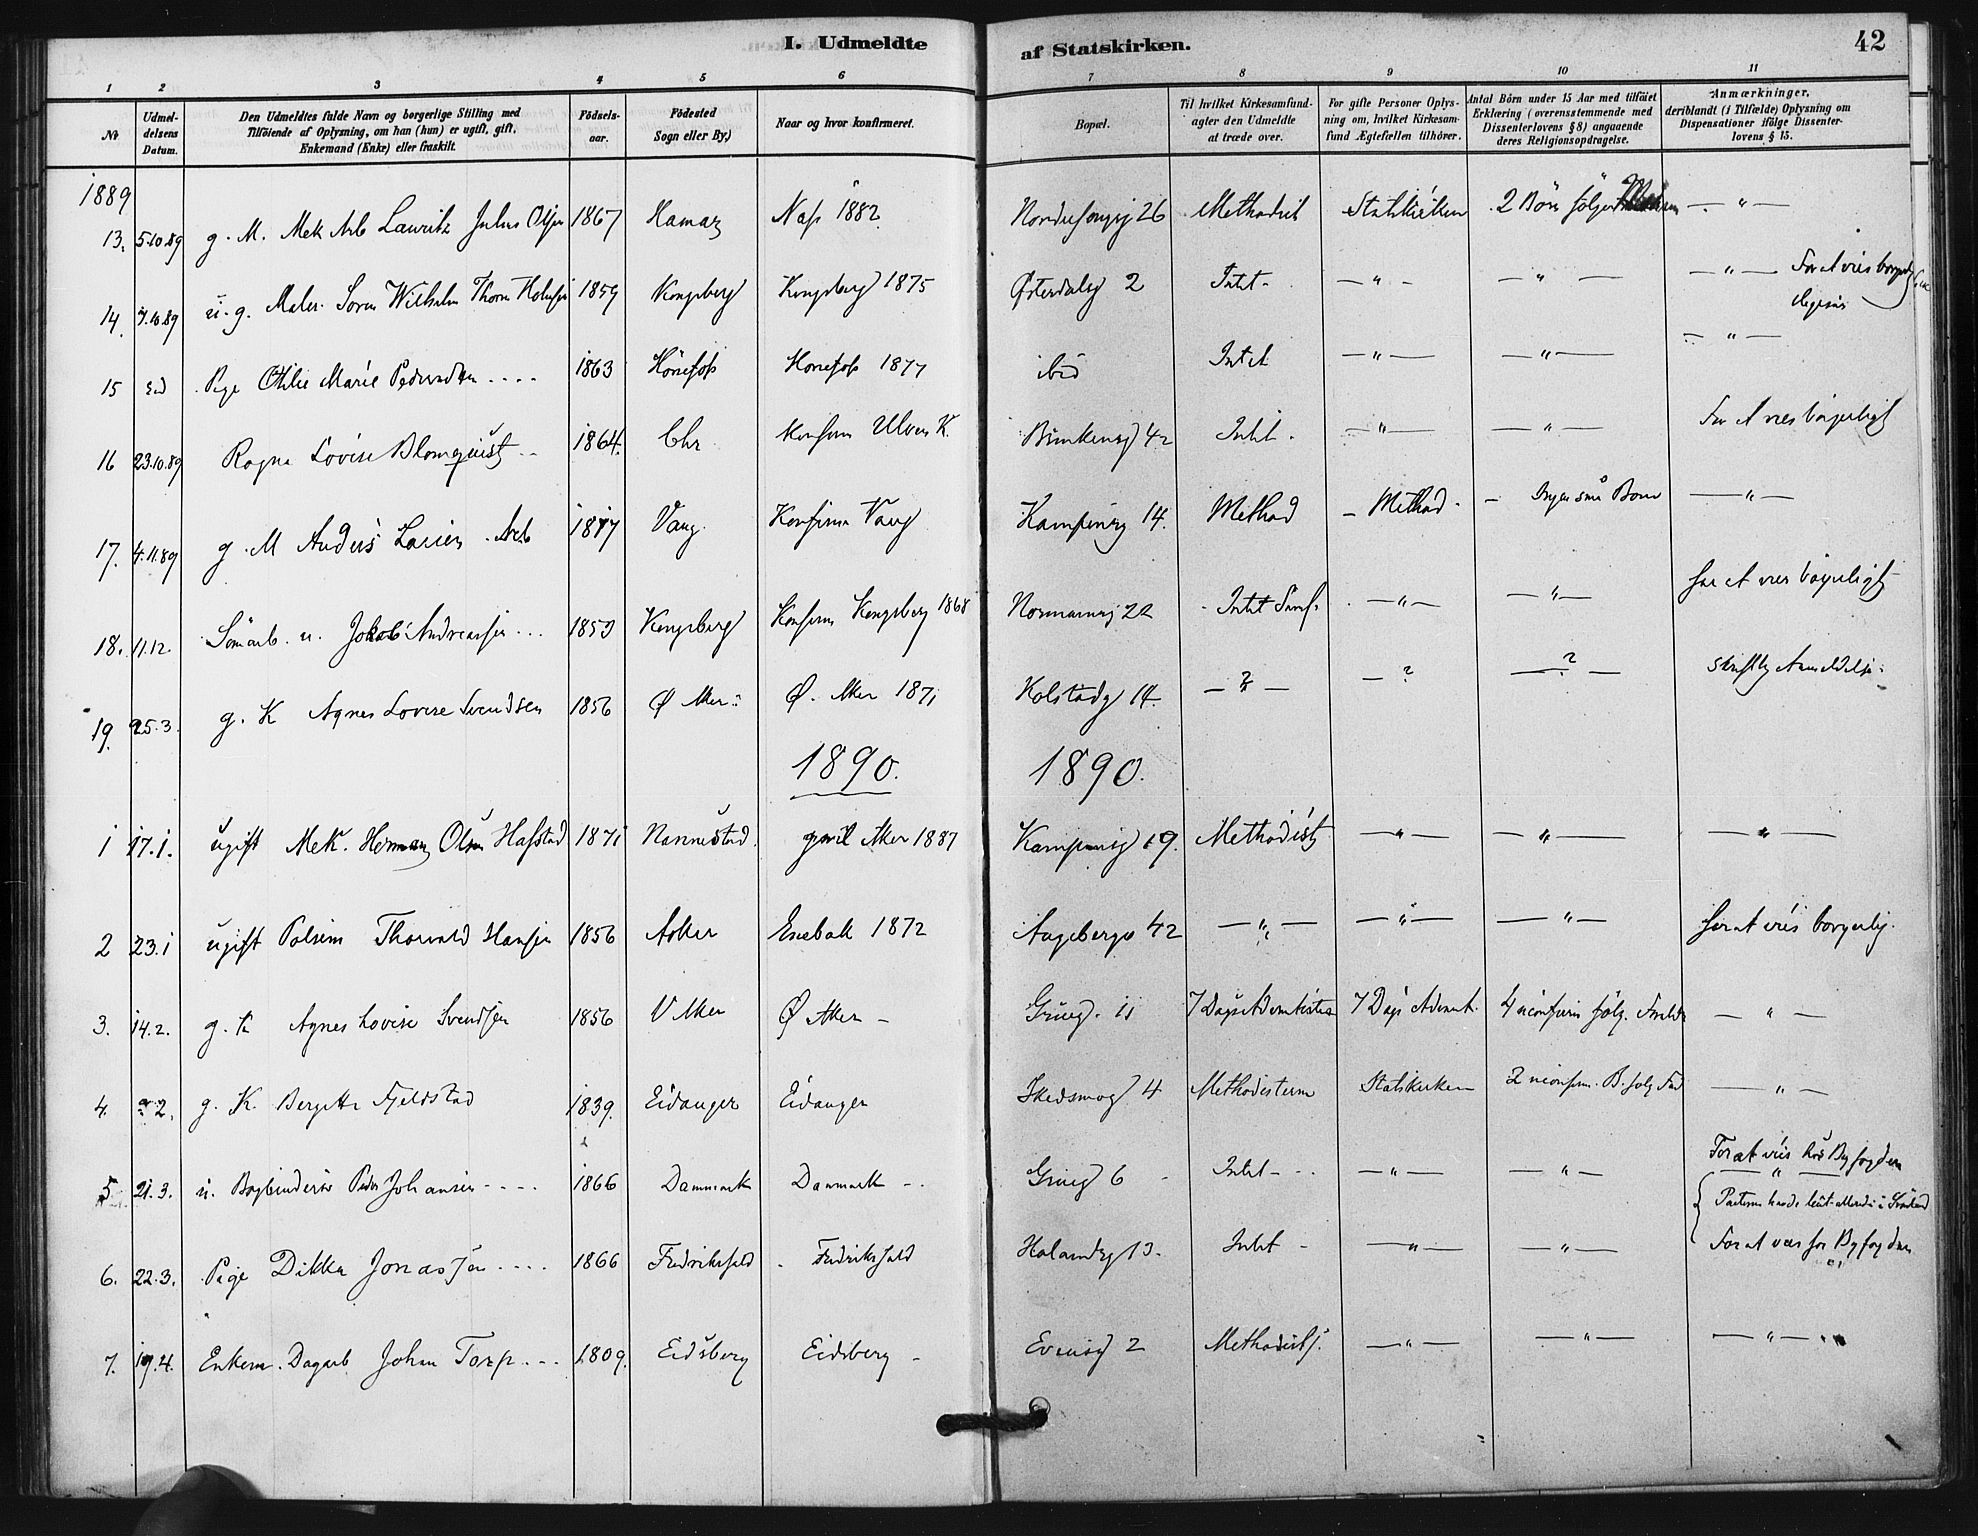 I. Udmeldte af Statskirken. 42
1 2 3 4 5 6 7 8 9 10 11
No
Udmel-
delsens
Datum.
Den Udmeldtes fulde Navn og borgerlige Stilling med
Tilføiende af Oplysning, om han (hun) er ugift, gift,
Enkemand (Enke) eller fraskilt.
Fødsels-
aar.
Fødested
Sogn eller By.)
Naar og hvor konfirmeret.
Bopæl.
Til hvilket Kirkesamfund-
agter den Udmeldte
at træde over.
For gifte Personer Oplys-
ning om, hvilket Kirkesam-
fund Ægtefællen tilhører.
Antal Börn under 15 Aar med tilföiet
Erklæring (overensstemmende med
Dissenterlovens § 8) angaaende
deres Religionsopdragelse.
Anmærkninger,
deriblandt (i Tilfælde) Oplysning om
Dispensationer ifölge Dissenter-
lovens § 15.
1889
13. 5.10.89 g. M. Mek Arb Lauritz Julius Olsen 1867 Hamar 1882 26 Methodist Statskirken 2 Börn følger — " —
14. 7.10.89 u. g. Maler Soren Wilhelm Thorn 1859 Kongsberg Kongsberg 1875 Østerdalsg 2 Intet - — " - — " — — " — For at vies borgerlig
15 Pige Othilie Marie Pedersdtr .... 1863 Hönefos Honefos 1877 ibid Intet — " — — " — — " —
16 23.10.89 Ragna Lovise Blomquist 1864. Chr K. 42 Intet. — " — — " — For at vies bögerligt
17. 4.11.89 g. M Anders Larsen Arb Vang. Konfirm Vang Kampensg 14. Method — Method - — Börn — " —
18. 11.12. u. Jokob Andreassen ... 1859 Kongsberg Konfirm Kongsberg 1868 Normannsg 22 - Intet Samf. — " — — " — for at vies bögerligt
19. 25.3. g. K Agnes Lovise Svendsen 1856 Ø Aker Ø. Aker 1871 Kolstadg 14. — ? — — ? — ? — skriftlig Anmeldelse.
1890. 1890.
1 17.1. ugift Mek. Herman Olsen Hafstad 1871 Nannestad. Aker 1887 Kampensg 19. Methodist — " — — " — — " —
2 23.1 ugift Thorvald Hansen 1856 Asker Enebak 1872 Aagebergv 42 — " — — " — — " — for at vies borgerlig.
3. 14.2. g. K Agnes Lovise Svendsen 1856 V Aker Ø Aker — 11 7 Dags Adventister 7 Dags Advent. 4 uconfirm følg. — " —
4. g. K. Bergitte Fjeldstad 1839. Eidanger Eidanger Skedsmog 4 Methodisterne Statskirken 2 uconfirm. B. følg — " —
5 21.3. u. Bogbinder Peder Johansen .... 1866 Danmark Danmark 6 Intet — " — — " — For at vies hos Byfogden
— " —
6. 22.3. Pige Dikka Jonassen .... 1866 Fredrikshald Fredrikshald 13. Intet — — " — — " — For at vies for Byfogden
7. 19.4. Enkem. Dagarb Johan Torp ... 1809. Eidsberg Eidsberg — 2 Methodist. — " — — " — — " —